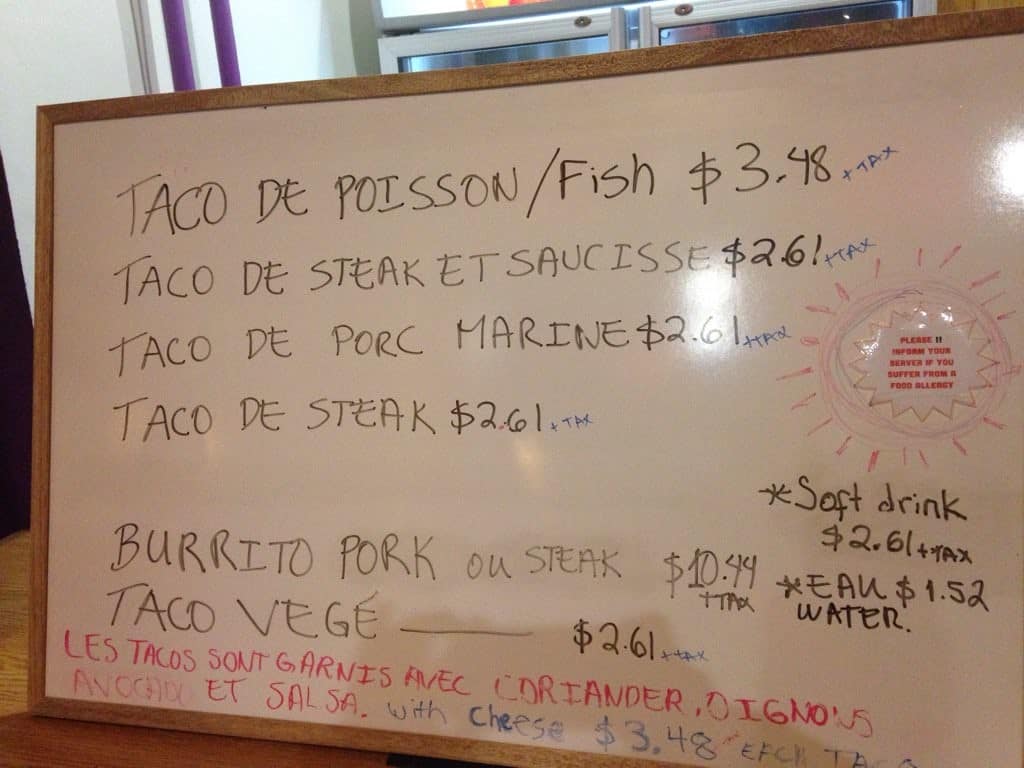 TACO DE POISSON/Fish $3.48 + TAX
TACO DE STEAK ET SAUCISSE $2.61 + TAX
TACO DE PORC MARINE $2.61 + TAX
TACO DE STEAK $2.61 + TAX
PLEASE !!
INFORM YOUR
SERVER IF YOU
SUFFER FROM A
FOOD ALLERGY
*Soft drink
$2.61 + TAX
*EAU $1.52
WATER.
BURRITO PORK ou STEAK $10.44
+ TAX
TACO VEGÉ — $2.61 + TAX
LES TACOS SONT GARNIS AVEC CORIANDER, OIGNONS
AVOCADO ET SALSA. with cheese $3.48 EACH TACO